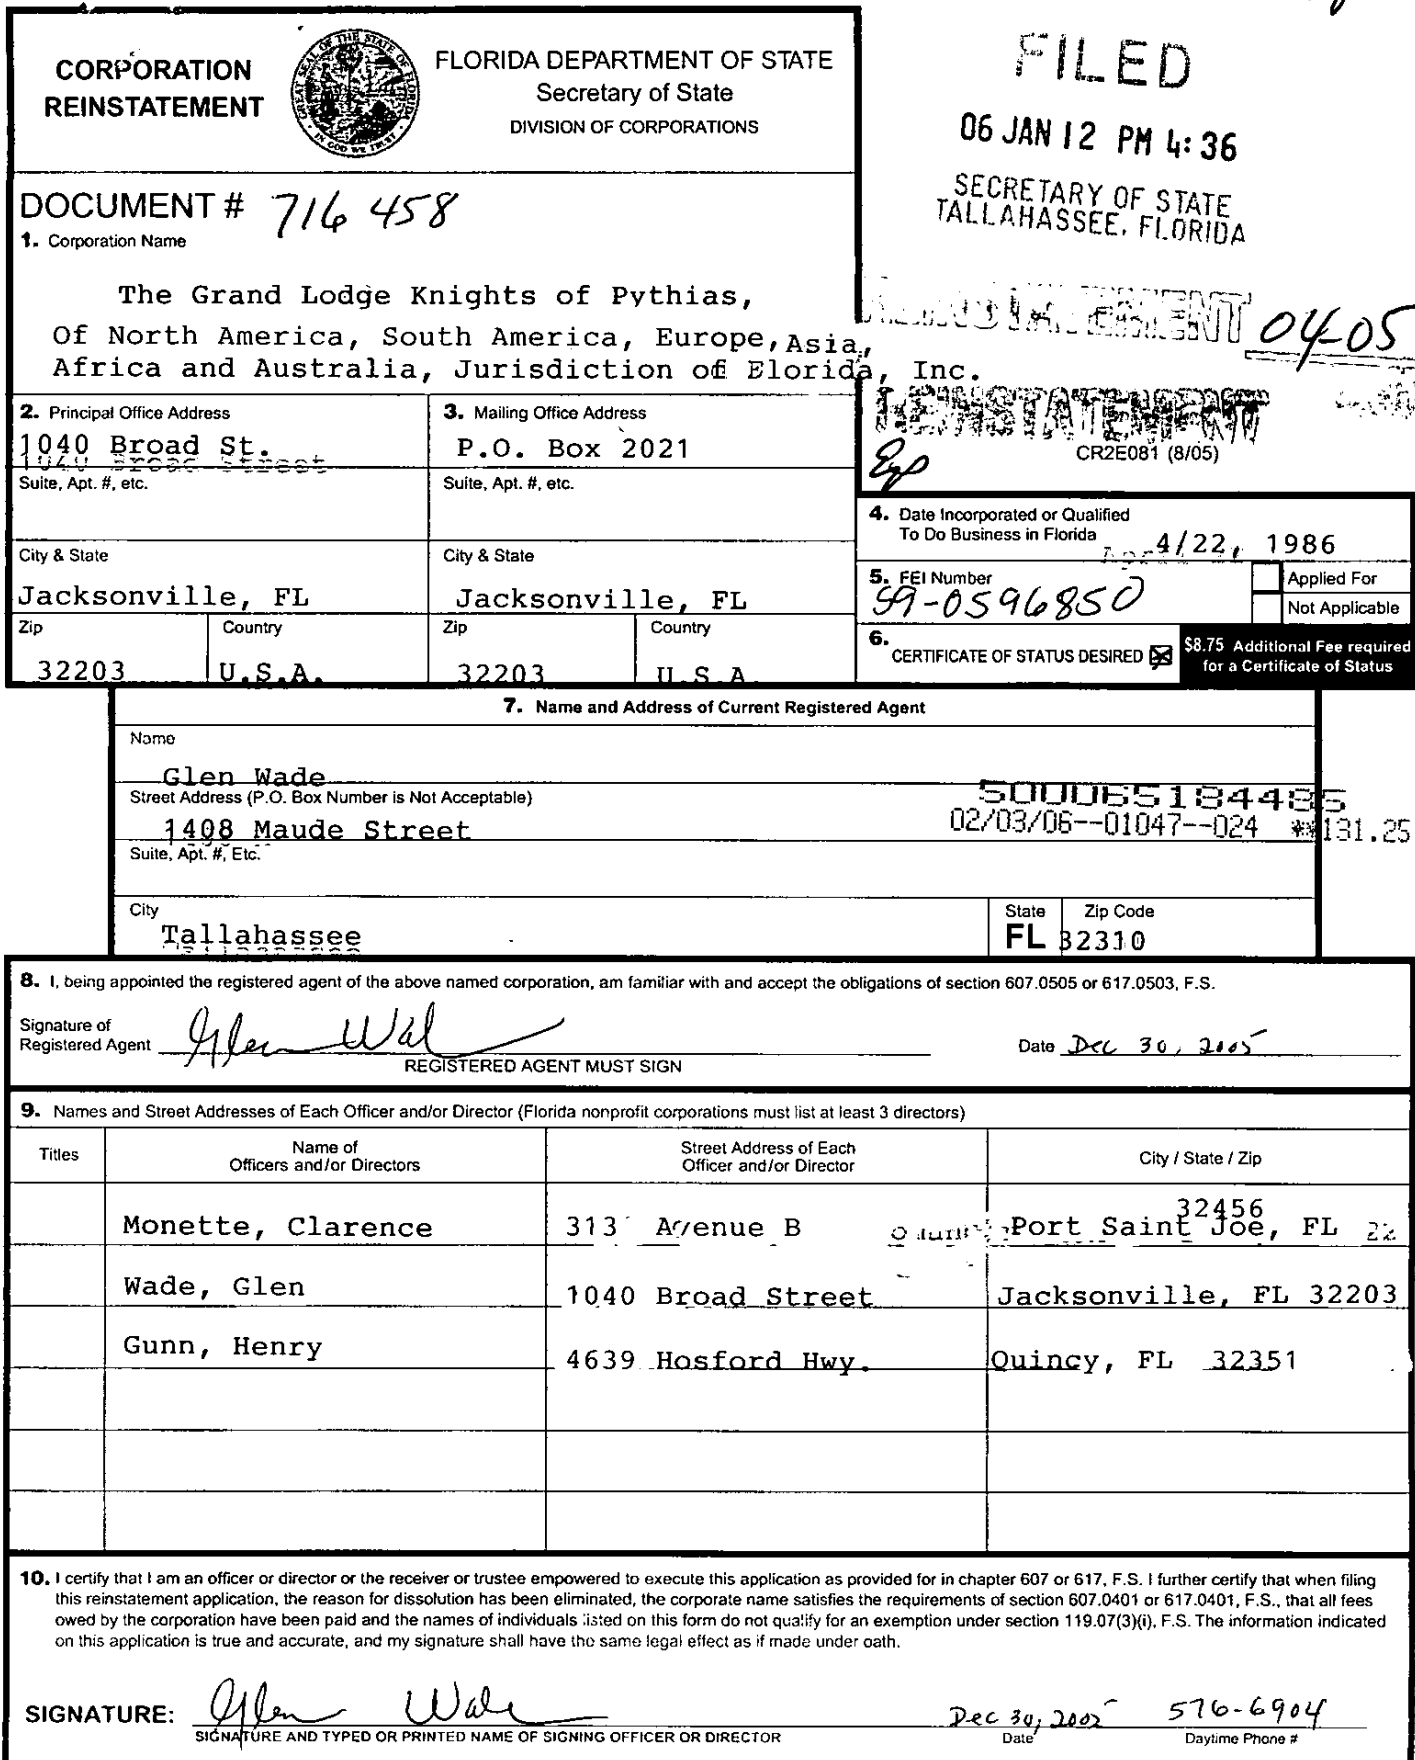 CORPORATION
REINSTATEMENT
FLORIDA DEPARTMENT OF STATE
Secretary of State
DIVISION OF CORPORATIONS
FILED
06 JAN 12 PM 4:36
SECRETARY OF STATE
TALLAHASSEE, FLORIDA
DOCUMENT # 716458
1. Corporation Name
The Grand Lodge Knights of Pythias,
Of North America, South America, Europe, Asia,
Africa and Australia, Jurisdiction of Florida, Inc.
REINSTATEMENT 04-05
REINSTATEMENT
CR2E081 (8/05)
2. Principal Office Address
1040 Broad St.
Suite, Apt. #, etc.
City & State
Jacksonville, FL
Zip Country
32203 U.S.A.
3. Mailing Office Address
P.O. Box 2021
Suite, Apt. #, etc.
City & State
Jacksonville, FL
Zip Country
32203 U.S.A
4. Date Incorporated or Qualified
To Do Business in Florida 4/22, 1986
5. FEI Number
59-0596850
Applied For
Not Applicable
6.
CERTIFICATE OF STATUS DESIRED
$8.75 Additional Fee required
for a Certificate of Status
7. Name and Address of Current Registered Agent
Name
Glen Wade
Street Address (P.O. Box Number is Not Acceptable)
1408 Maude Street
500065184485
02/03/06--01047--024 **131.25
Suite, Apt. #, Etc.
City State Zip Code
Tallahassee FL 32310
8. I, being appointed the registered agent of the above named corporation, am familiar with and accept the obligations of section 607.0505 or 617.0503, F.S.
Signature of
Registered Agent Glen Wade
REGISTERED AGENT MUST SIGN
Date Dec 30, 2005
9. Names and Street Addresses of Each Officer and/or Director (Florida nonprofit corporations must list at least 3 directors)
Titles
Name of
Officers and/or Directors
Street Address of Each
Officer and/or Director
City / State / Zip
32456
Monette, Clarence 313 Avenue B Port Saint Joe, FL
Wade, Glen 1040 Broad Street Jacksonville, FL 32203
Gunn, Henry 4639 Hosford Hwy. Quincy, FL 32351
10. I certify that I am an officer or director or the receiver or trustee empowered to execute this application as provided for in chapter 607 or 617, F.S. I further certify that when filing
this reinstatement application, the reason for dissolution has been eliminated, the corporate name satisfies the requirements of section 607.0401 or 617.0401, F.S., that all fees
owed by the corporation have been paid and the names of individuals listed on this form do not qualify for an exemption under section 119.07(3)(i), F.S. The information indicated
on this application is true and accurate, and my signature shall have the same legal effect as if made under oath.
SIGNATURE: Glen Wade Dec 30, 2005 576-6904
SIGNATURE AND TYPED OR PRINTED NAME OF SIGNING OFFICER OR DIRECTOR Date Daytime Phone #